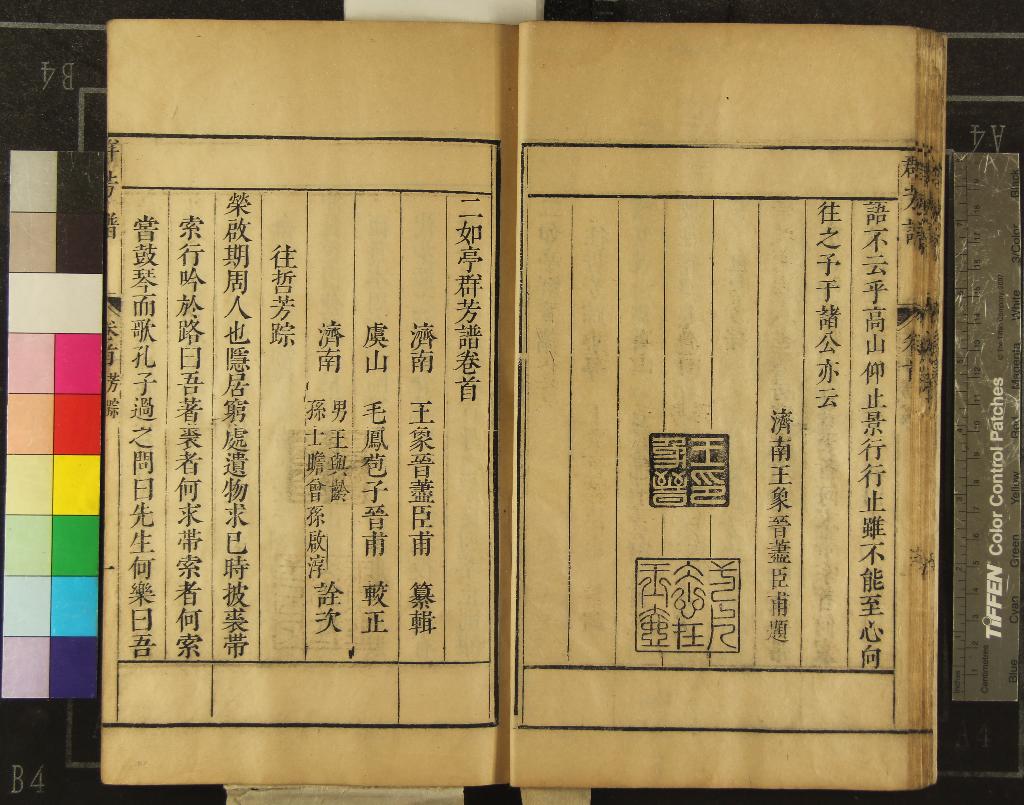 語不云乎高山仰止景行行止雖不能至心向
往之予于諸公亦云
濟南王象晉藎臣甫題
王印象晉
二如亭群芳譜卷首
濟南 王象晉藎臣甫 纂輯
虞山 毛鳳苞子晉甫 較正
濟南 男王與齡
孫士瞻曾孫啟淳 詮次
往哲芳踪
榮啟期周人也隱居窮處遺物求已時披裘帶
索行吟於路曰吾著裘者何求帶索者何索
嘗鼓琴而歌孔子過之問曰先生何樂曰吾
群芳譜
卷首
群芳譜 卷首 芳踪 一
TIFFEN Color Control Patches
Blue Cyan Green Yellow Red Magenta White 3/Color Black
Inches
Centimetres
B4
B4
A4
A4